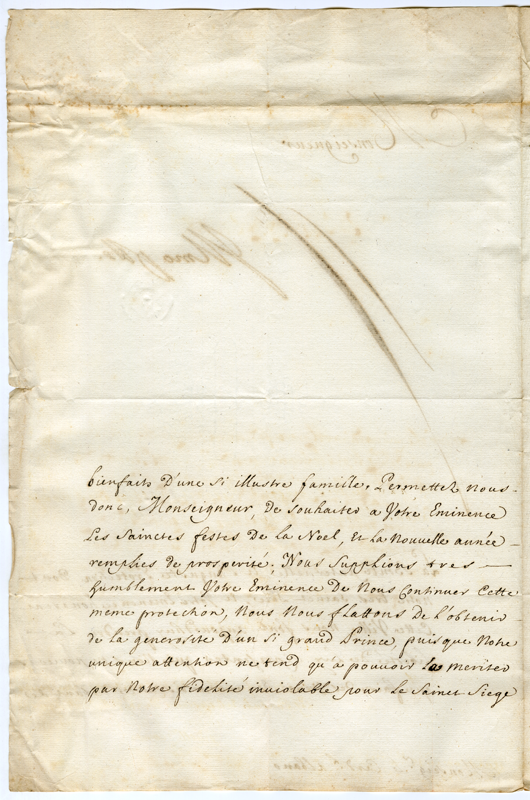 Monseigneur
bienfaits D'une si illustre famille, Permettez nous
donc, Monseigneur, de souhaiter a Votre Eminence
Les Sainctes festes de la Noel, et la Nouvelle année
remplies de prosperité. Nous Supplions tres
humblement Votre Eminence De Nous continuer Cette
meme protection, Nous Nous flattons De l'obtenir
de la generosité D'un si grand Prince, puisque Notre
unique attention ne tend qu'à pouvoir la meriter
par Notre fidelité inviolable pour le Sainct Siege